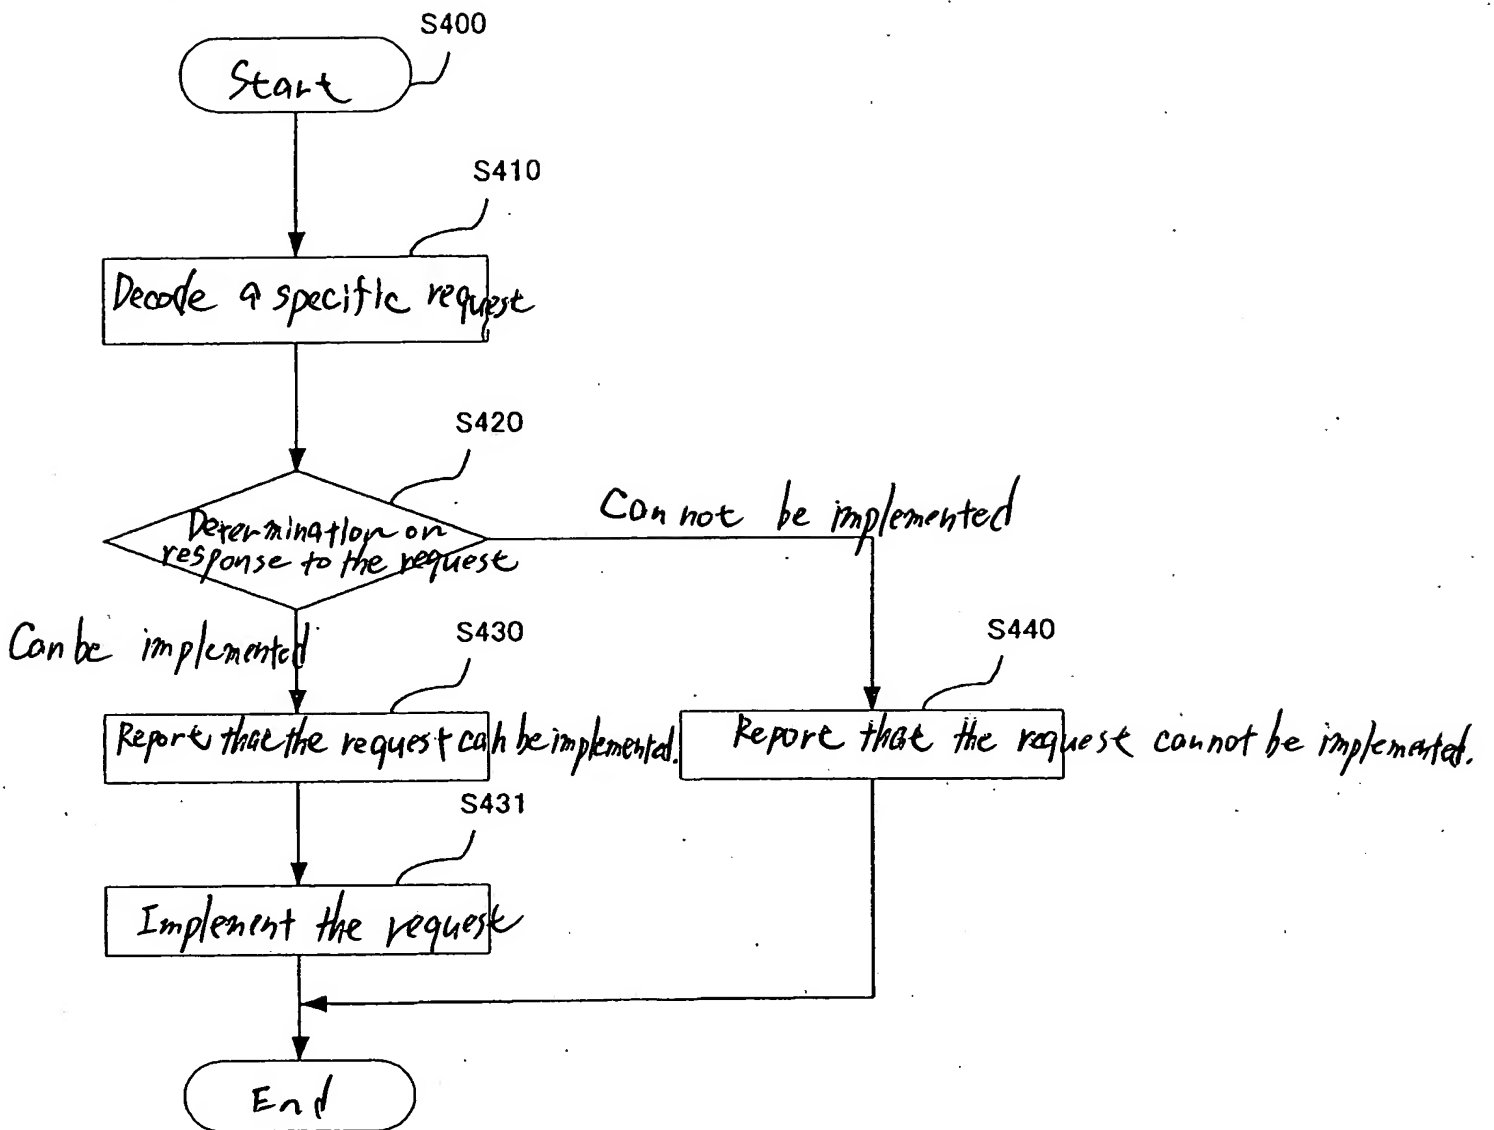 S400
Start
S410
Decode a specific request
S420
Determination on
response to the request
Can not be implemented
Can be implemented
S430
S440
Report that the request can be implemented.
Report that the request cannot be implemented.
S431
Implement the request
End